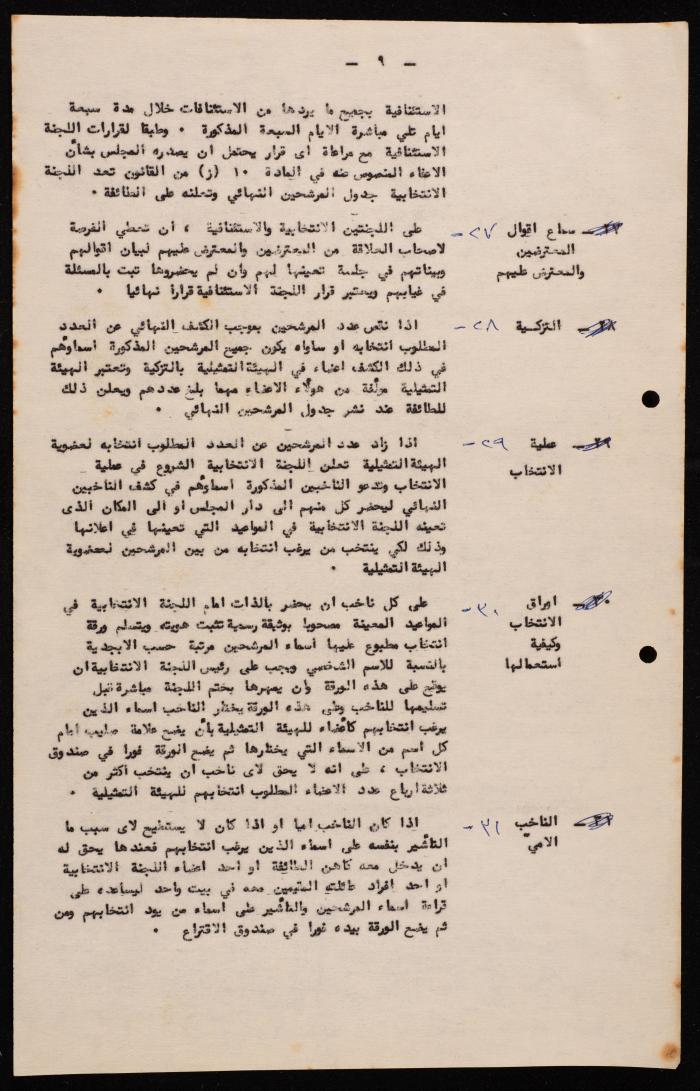 — ٩ —
الاستئنافية بجميع ما يردها من الاستئنافات خلال مدة سبعة
ايام تلي مباشرة الايام السبعة المذكورة • وطبقا لقرارات اللجنة
الاستئنافية مع مراعاة اى قرار يحتمل ان يصدره المجلس بشأن
الاعفاء المنصوص عنه في المادة ١٠ (ز) من القانون تعد اللجنة
الانتخابية جدول المرشحين النهائي وتعلنه على الطائفة •
٢٧- سماع اقوال
المعترضين
والمعترض عليهم
على اللجنتين الانتخابية والاستئنافية ، ان تعطي الفرصة
لاصحاب العلاقة من المعترضين والمعترض عليهم لبيان اقوالهم
وبيناتهم في جلسة تعينها لهم وان لم يحضروها تبت بالمسئلة
في غيابهم ويعتبر قرار اللجنة الاستئنافية قرارا نهائيا •
٢٨- التزكية
اذا نقص عدد المرشحين بموجب الكشف النهائي عن العدد
المطلوب انتخابه او ساواه يكون جميع المرشحين المذكورة اسماؤهم
في ذلك الكشف اعضاء في الهيئة التمثيلية بالتزكية وتعتبر الهيئة
التمثيلية مؤلفة من هؤلاء الاعضاء مهما بلغ عددهم ويعلن ذلك
للطائفة عند نشر جدول المرشحين النهائي •
٢٩- عملية
الانتخاب
اذا زاد عدد المرشحين عن العدد المطلوب انتخابه لعضوية
الهيئة التمثيلية تعلن اللجنة الانتخابية الشروع في عملية
الانتخاب وتدعو الناخبين المذكورة اسماؤهم في كشف الناخبين
النهائي ليحضر كل منهم الى دار المجلس او الى المكان الذى
تعينه اللجنة الانتخابية في المواعيد التي تعينها في اعلانها
وذلك لكي ينتخب من يرغب انتخابه من بين المرشحين لعضوية
الهيئة التمثيلية •
٣٠- اوراق
الانتخاب
وكيفية
استعمالها
على كل ناخب ان يحضر بالذات امام اللجنة الانتخابية في
المواعيد المعينة مصحوبا بوثيقة رسمية تثبت هويته ويتسلم ورقة
انتخاب مطبوع عليها اسماء المرشحين مرتبة حسب الابجدية
بالنسبة للاسم الشخصي ويجب على رئيس اللجنة الانتخابية ان
يوقع على هذه الورقة وان يمهرها بختم اللجنة مباشرة قبل
تسليمها للناخب وعلى هذه الورقة يختار الناخب اسماء الذين
يرغب انتخابهم كأعضاء للهيئة التمثيلية بأن يضع علامة صليب امام
كل اسم من الاسماء التي يختارها ثم يضع الورقة فورا في صندوق
الانتخاب ، على انه لا يحق لاى ناخب ان ينتخب اكثر من
ثلاثة ارباع عدد الاعضاء المطلوب انتخابهم للهيئة التمثيلية •
٣١- الناخب
الاميّ
اذا كان الناخب اميا او اذا كان لا يستطيع لاى سبب ما
التأشير بنفسه على اسماء الذين يرغب انتخابهم فعندها يحق له
ان يدخل معه كاهن الطائفة او احد اعضاء اللجنة الانتخابية
او احد افراد عائلته المقيمين معه في بيت واحد ليساعده على
قراءة اسماء المرشحين والتأشير على اسماء من يود انتخابهم ومن
ثم يضع الورقة بيده فورا في صندوق الاقتراع •